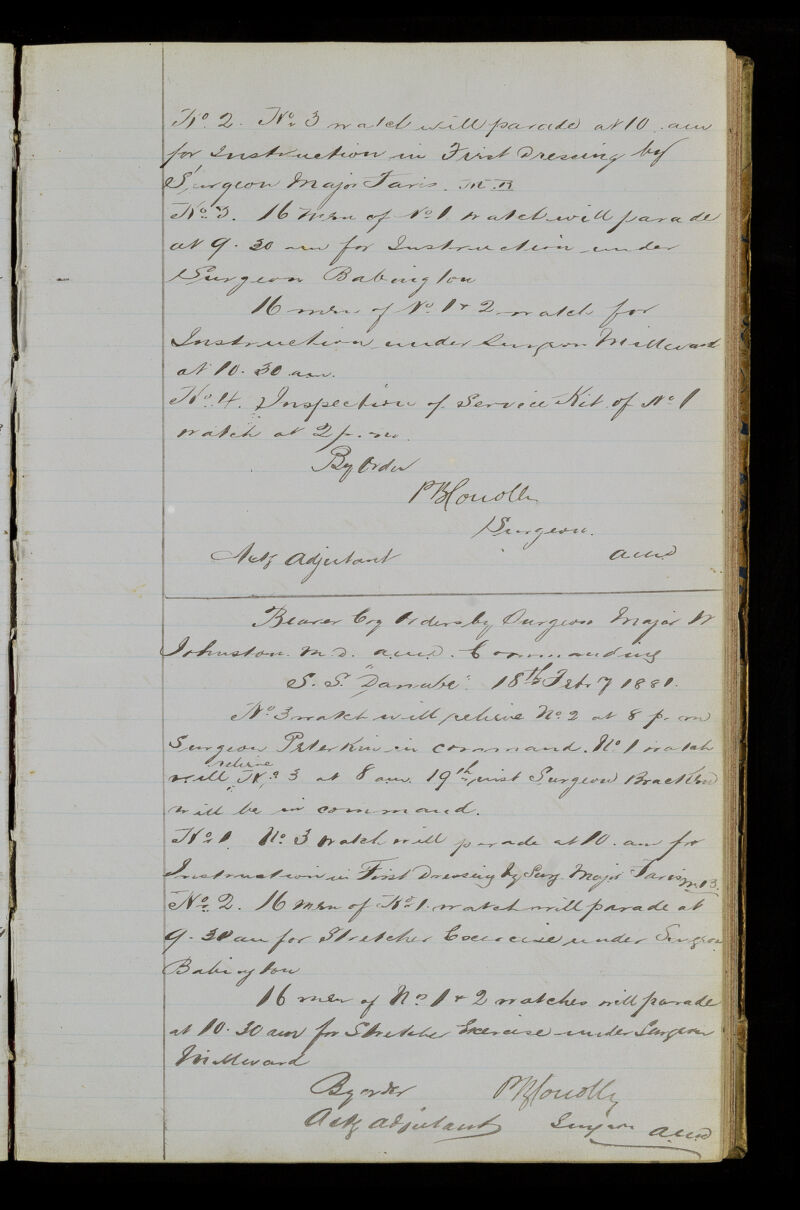 No. 2. No. 3 watch will parade at 10. am
for Instruction in First Dressing by
Surgeon Major Faris. M.B
No. 3. 16 men of No 1 watch will parade
at 9. 30 am for Instruction under
Surgeon Babington
16 men of No. 1 & 2 watch for
Instruction under Surgeon Millward
at 10. 30 am.
No. 4. Inspection of Service Kit of No 1
watch at 2 p.m.
By Order
P B Conolly
Surgeon.
Actg Adjutant A.M.D
Bearer Coy Orders by Surgeon Major W
Johnston. M.D. A.M.D. Commanding
S.S. "Danube" 18th Feby 1881.
No. 3 watch will relieve No. 2 at 8 p.m
Surgeon Peterkin in command. No. 1 watch
will relieve No. 3 at 8 am 19th inst Surgeon
will be in command.
No. 1. No. 3 watch will parade at 10. am for
Instruction in First Dressing by Surg. Major Faris M.B.
No. 2. 16 men of No. 1. watch will parade at
9. 30 am for Stretcher Exercise under Surgeon
Babington
16 men of No. 1 & 2 watches will parade
at 10. 30 am for Stretcher Exercise under Surgeon
Millward
By order P B Conolly
Actg Adjutant Surgeon A.M.D